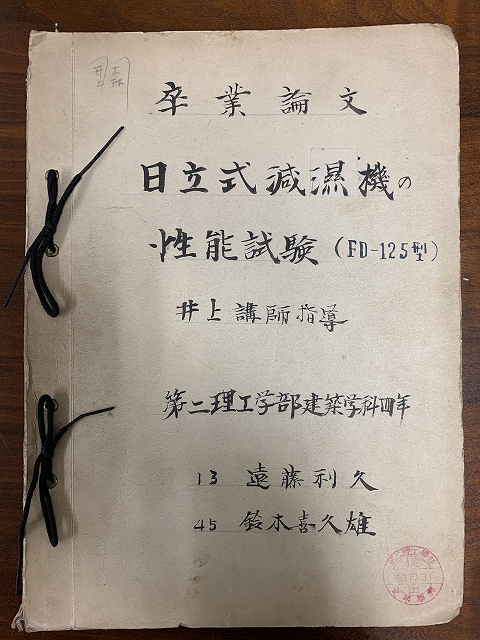 卒業論文
日立式減濕機の
性能試験(FD-125型)
井上講師指導
第二理工学部建築学科四年
13 遠藤利久
45 鈴木喜久雄